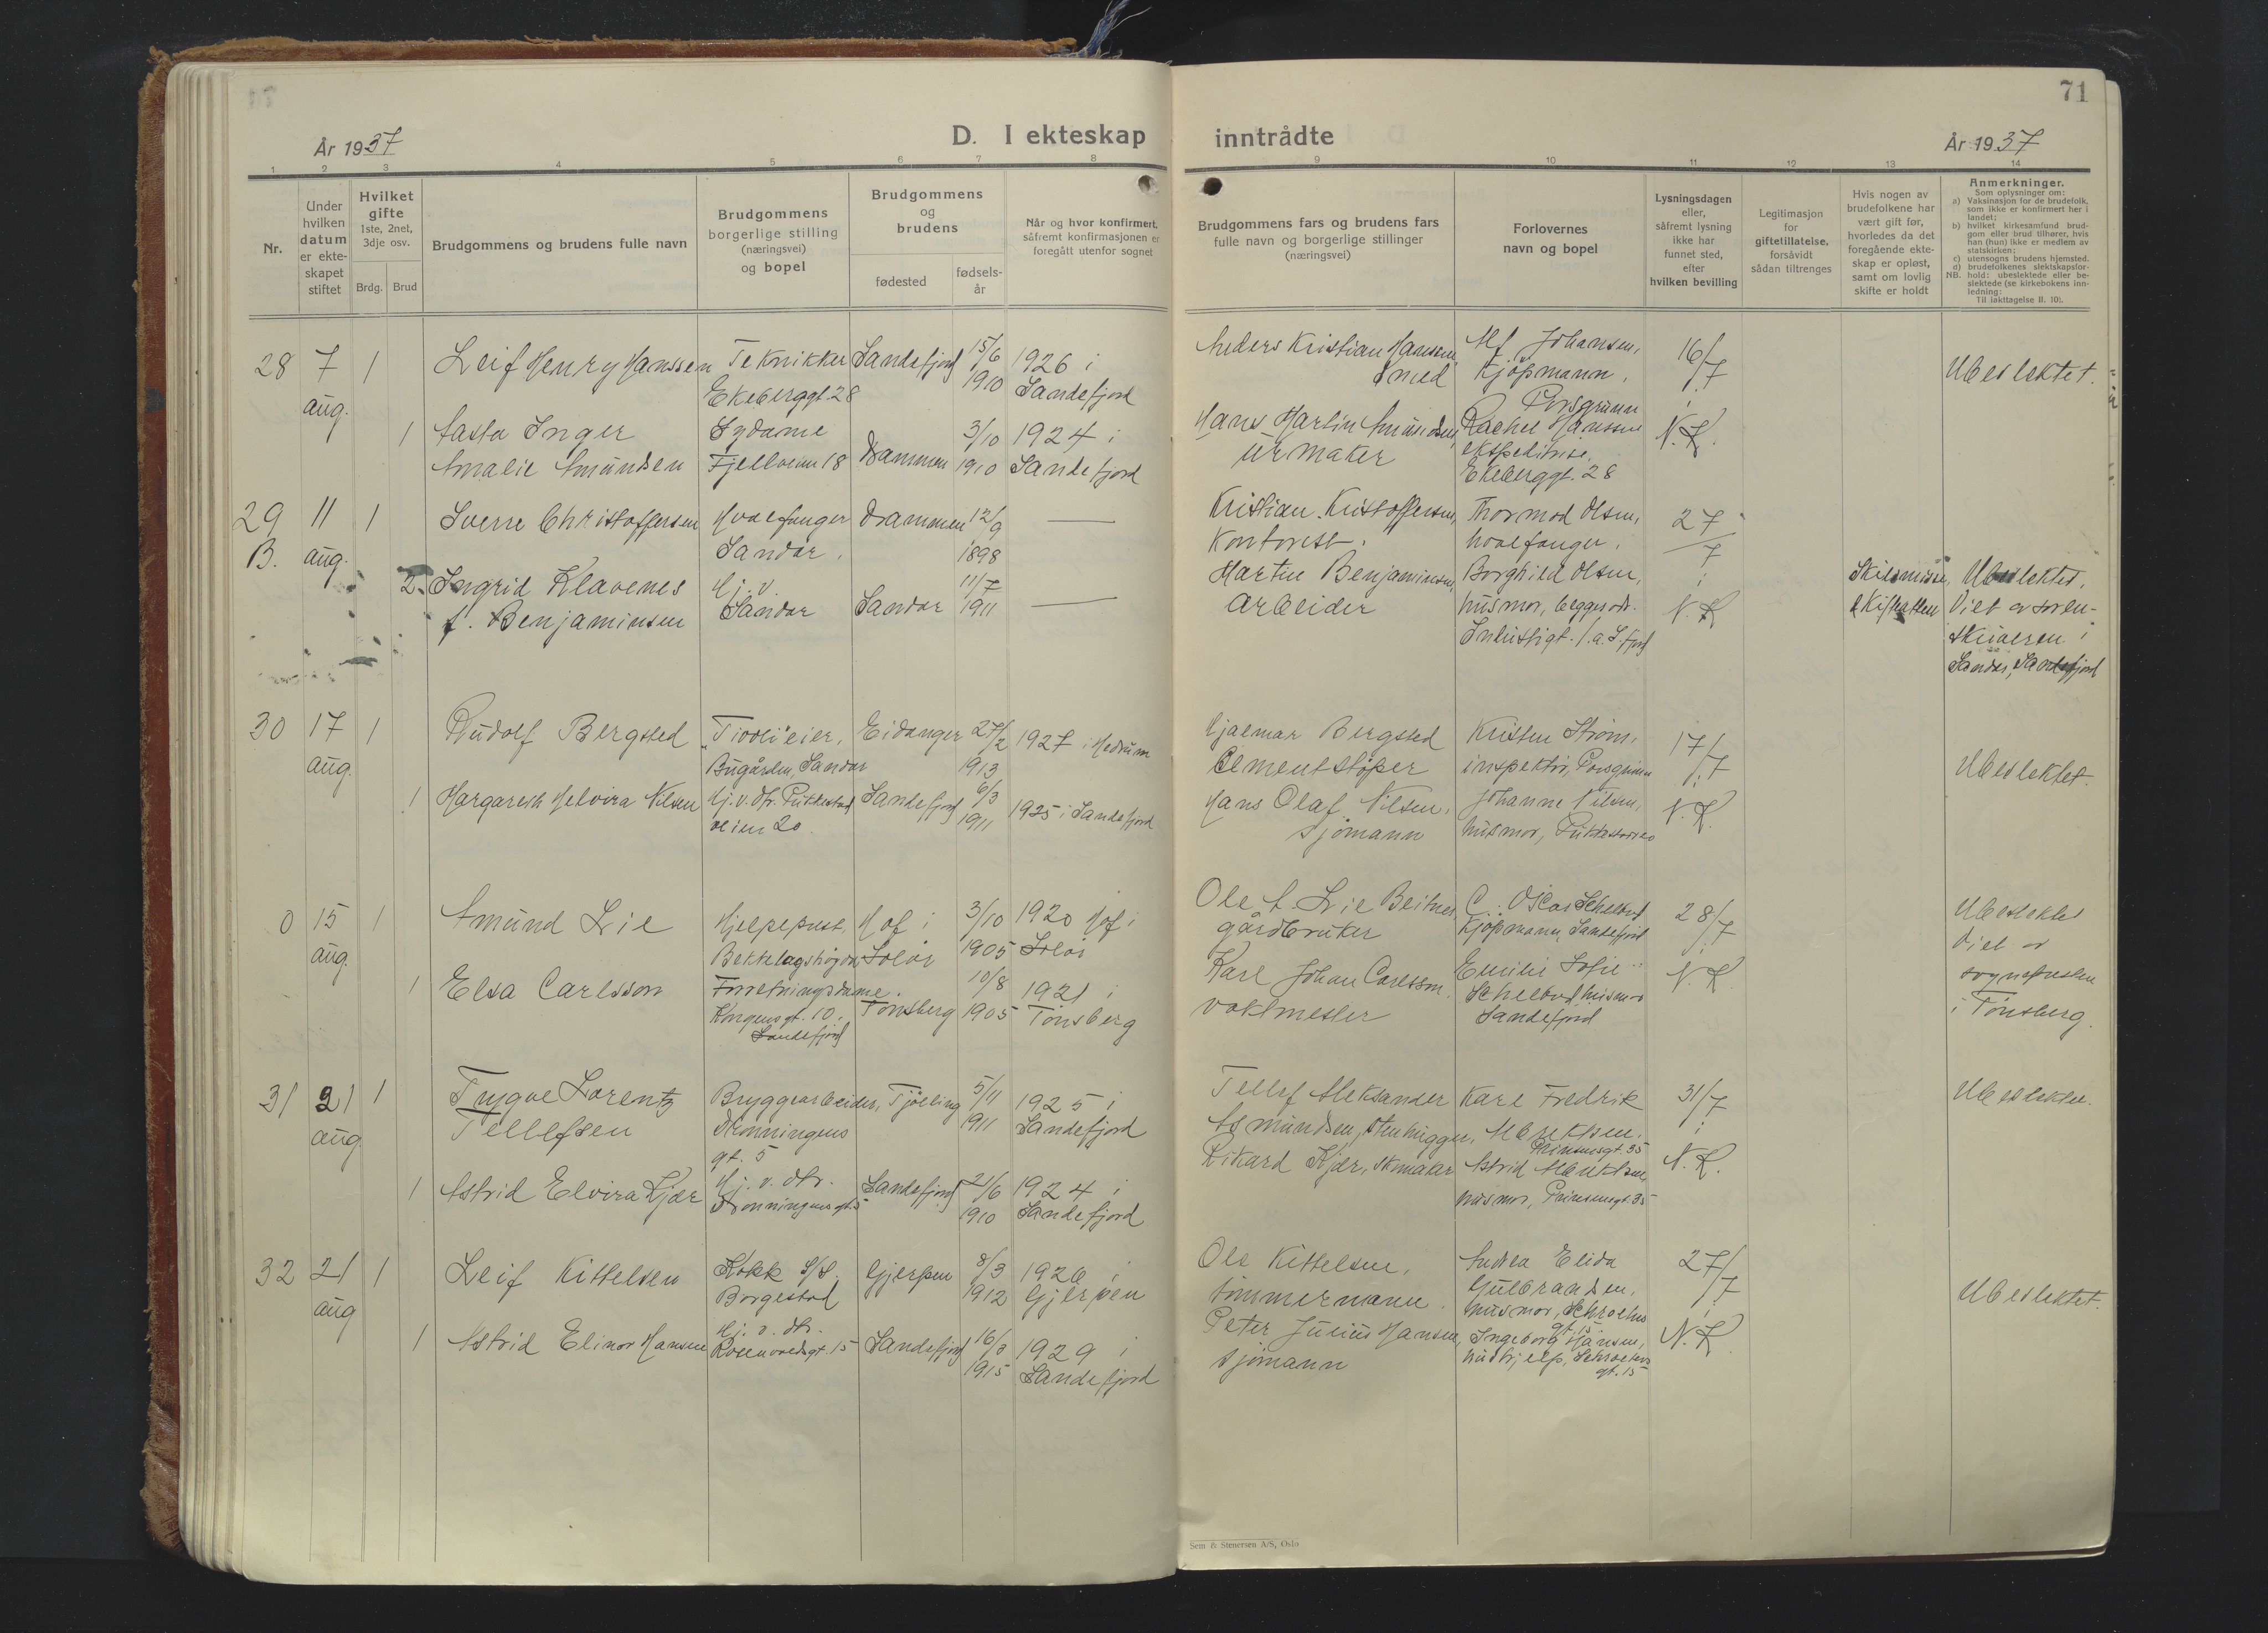 71
År 1937
D. I ekteskap
inntrådte
År 1937
1 2 3 4 5 6 7 8 9 10 11 12 13 14
Nr.
Under
hvilken
datum
er ekte-
skapet
stiftet
Hvilket
gifte
1ste, 2net,
3dje osv.
Brdg. Brud
Brudgommens og brudens fulle navn
Brudgommens
borgerlige stilling
(næringsvei)
og bopel
Brudgommens
og
brudens
fødested
fødsels-
år
Når og hvor konfirmert,
såfremt konfirmasjonen er
foregått utenfor sognet
Brudgommens fars og brudens fars
fulle navn og borgerlige stillinger
(næringsvei)
Forlovernes
navn og bopel
Lysningsdagen
eller,
såfremt lysning
ikke har
funnet sted,
efter
hvilken bevilling
Legitimasjon
for
giftetillatelse,
forsåvidt
sådan tiltrenges
Hvis nogen av
brudefolkene har
vært gift før,
hvorledes da det
foregående ekte-
skap er opløst,
samt om lovlig
skifte er holdt
Anmerkninger.
Som oplysninger om:
a) Vaksinasjon for de brudefolk,
som ikke er konfirmert her i
landet;
b) hvilket kirkesamfund brud-
gom eller brud tilhører, hvis
han (hun) ikke er medlem av
statskirken;
c) utensogns brudens hjemsted.
d) brudefolkenes slektskapsfor-
NB. hold: ubeslektede eller be-
slektede (se kirkebokens inn-
ledning:
Til iakttagelse II. 10).
28
7
aug.
1
Leif Henry Hanssen
Teknikker
Ekeberggt. 28
Sandefjord
15/6
1910
1926 i
Sandefjord
Anders Kristian Hanssen
Smed
Alf Johansen,
Kjöpmann.
Porsgrunn
16/7
i
N.K.
Ubeslektet.
1
Aasta Inger
Amalie Amundsen
Sydame
Fjellveien 18
Drammen
3/10
1910
1924 i
Sandefjord
Hans Martin Amundsen,
Urmaker
Rachel Hanssen
Ekeberggt. 28
29
B.
11
aug.
1
Sverre Christoffersen
Hvalfanger
Sandar.
Drammen
12/9
1898
Kristian Kristoffersen,
Kontorist.
Thormod Olsen,
hvalfanger.
27/7
i
N.K
2.
Ingrid Klavenes
f. Benjaminsen
Hj. v.
Sandar
Sandar
11/7
1911
Martin Benjaminsen,
Arbeider
Borghild Olsen,
husmor, begge adr.
S.fjord
Skilsmisse,
Ubeslektet.
Viet av soren-
skriveren i
Sandar, Sandefjord
30
17
aug.
1
Rudolf Bergsted
"Tivoli"eier,
Bugården, Sandar
Eidanger
27/2
1913
1927 i Hedrum
Hjalmar Bergsted
Cementstöper
Kristen Ström,
inspektör, Porsgrunn
17/7
i
N.K.
Ubeslektet.
1
Margareth Helvira Nilsen
Hj. v. dtr. Pukkestad
veien 20.
Sandefjord
6/3
1911
1925 i Sandefjord
Hans Olaf Nilsen,
sjömann
Johanne Nilsen,
husmor,
0
15
aug.
1
Amund Lie
Hjelpeprest,
Bekkelagshögda
Hof i
Solör
3/10
1905
1920 Hof i
Solör
Ole A. Lie
gårdbruker
C. Oscar
Kjöpmann, Sandefjord
28/7
i
N.K.
Ubeslektet
Viet av
sognepresten
i Tönsberg.
1
Elsa Carlsson
Forretningsdame.
Kongensgt. 10.
Sandefjord
Tönsberg
10/8
1905
1921 i
Tönsberg
Karl Johan Carlsson,
vaktmester
Emilie Sofie
husmor
Sandefjord
31
21
aug.
1
Trygve Lorentz
Tellefsen
Bryggearbeider,
Dronningens
gt. 5
Tjölling
5/11
1911
1925 i
Sandefjord
Tellef Aleksander
Asmundsen, stenhugger,
Karl Fredrik
Prinsensgt. 35
31/7
i
N.K.
Ubeslektet.
1
Astrid Elvira Kjær
Hj. v. dtr.
Dronningensgt. 5
Sandefjord
21/6
1910
1924 i
Sandefjord
Rikard Kjær, skomaker
Astrid
husmor, Prinsensgt. 35
32
21
aug
1
Leif Kittelsen
Kokk S/S.
Borgestad
Gjerpen
8/3
1912
1926 i
Gjerpen
Ole Kittelsen,
tömmermann.
Andrea Elida
Gulbrandsen,
husmor, Schröters
gt. 15.
27/7
i
N.K
Ubeslektet.
1
Astrid Elinor Hansen
Hj. v. dtr.
Rosenvoldsgt. 15
Sandefjord
16/3
1915
1929 i
Sandefjord
Peter Julius Hansen,
sjömann
Ingeborg Hansen,
hushjelp, Schröters
gt. 15
Sem & Stenersen A/S, Oslo